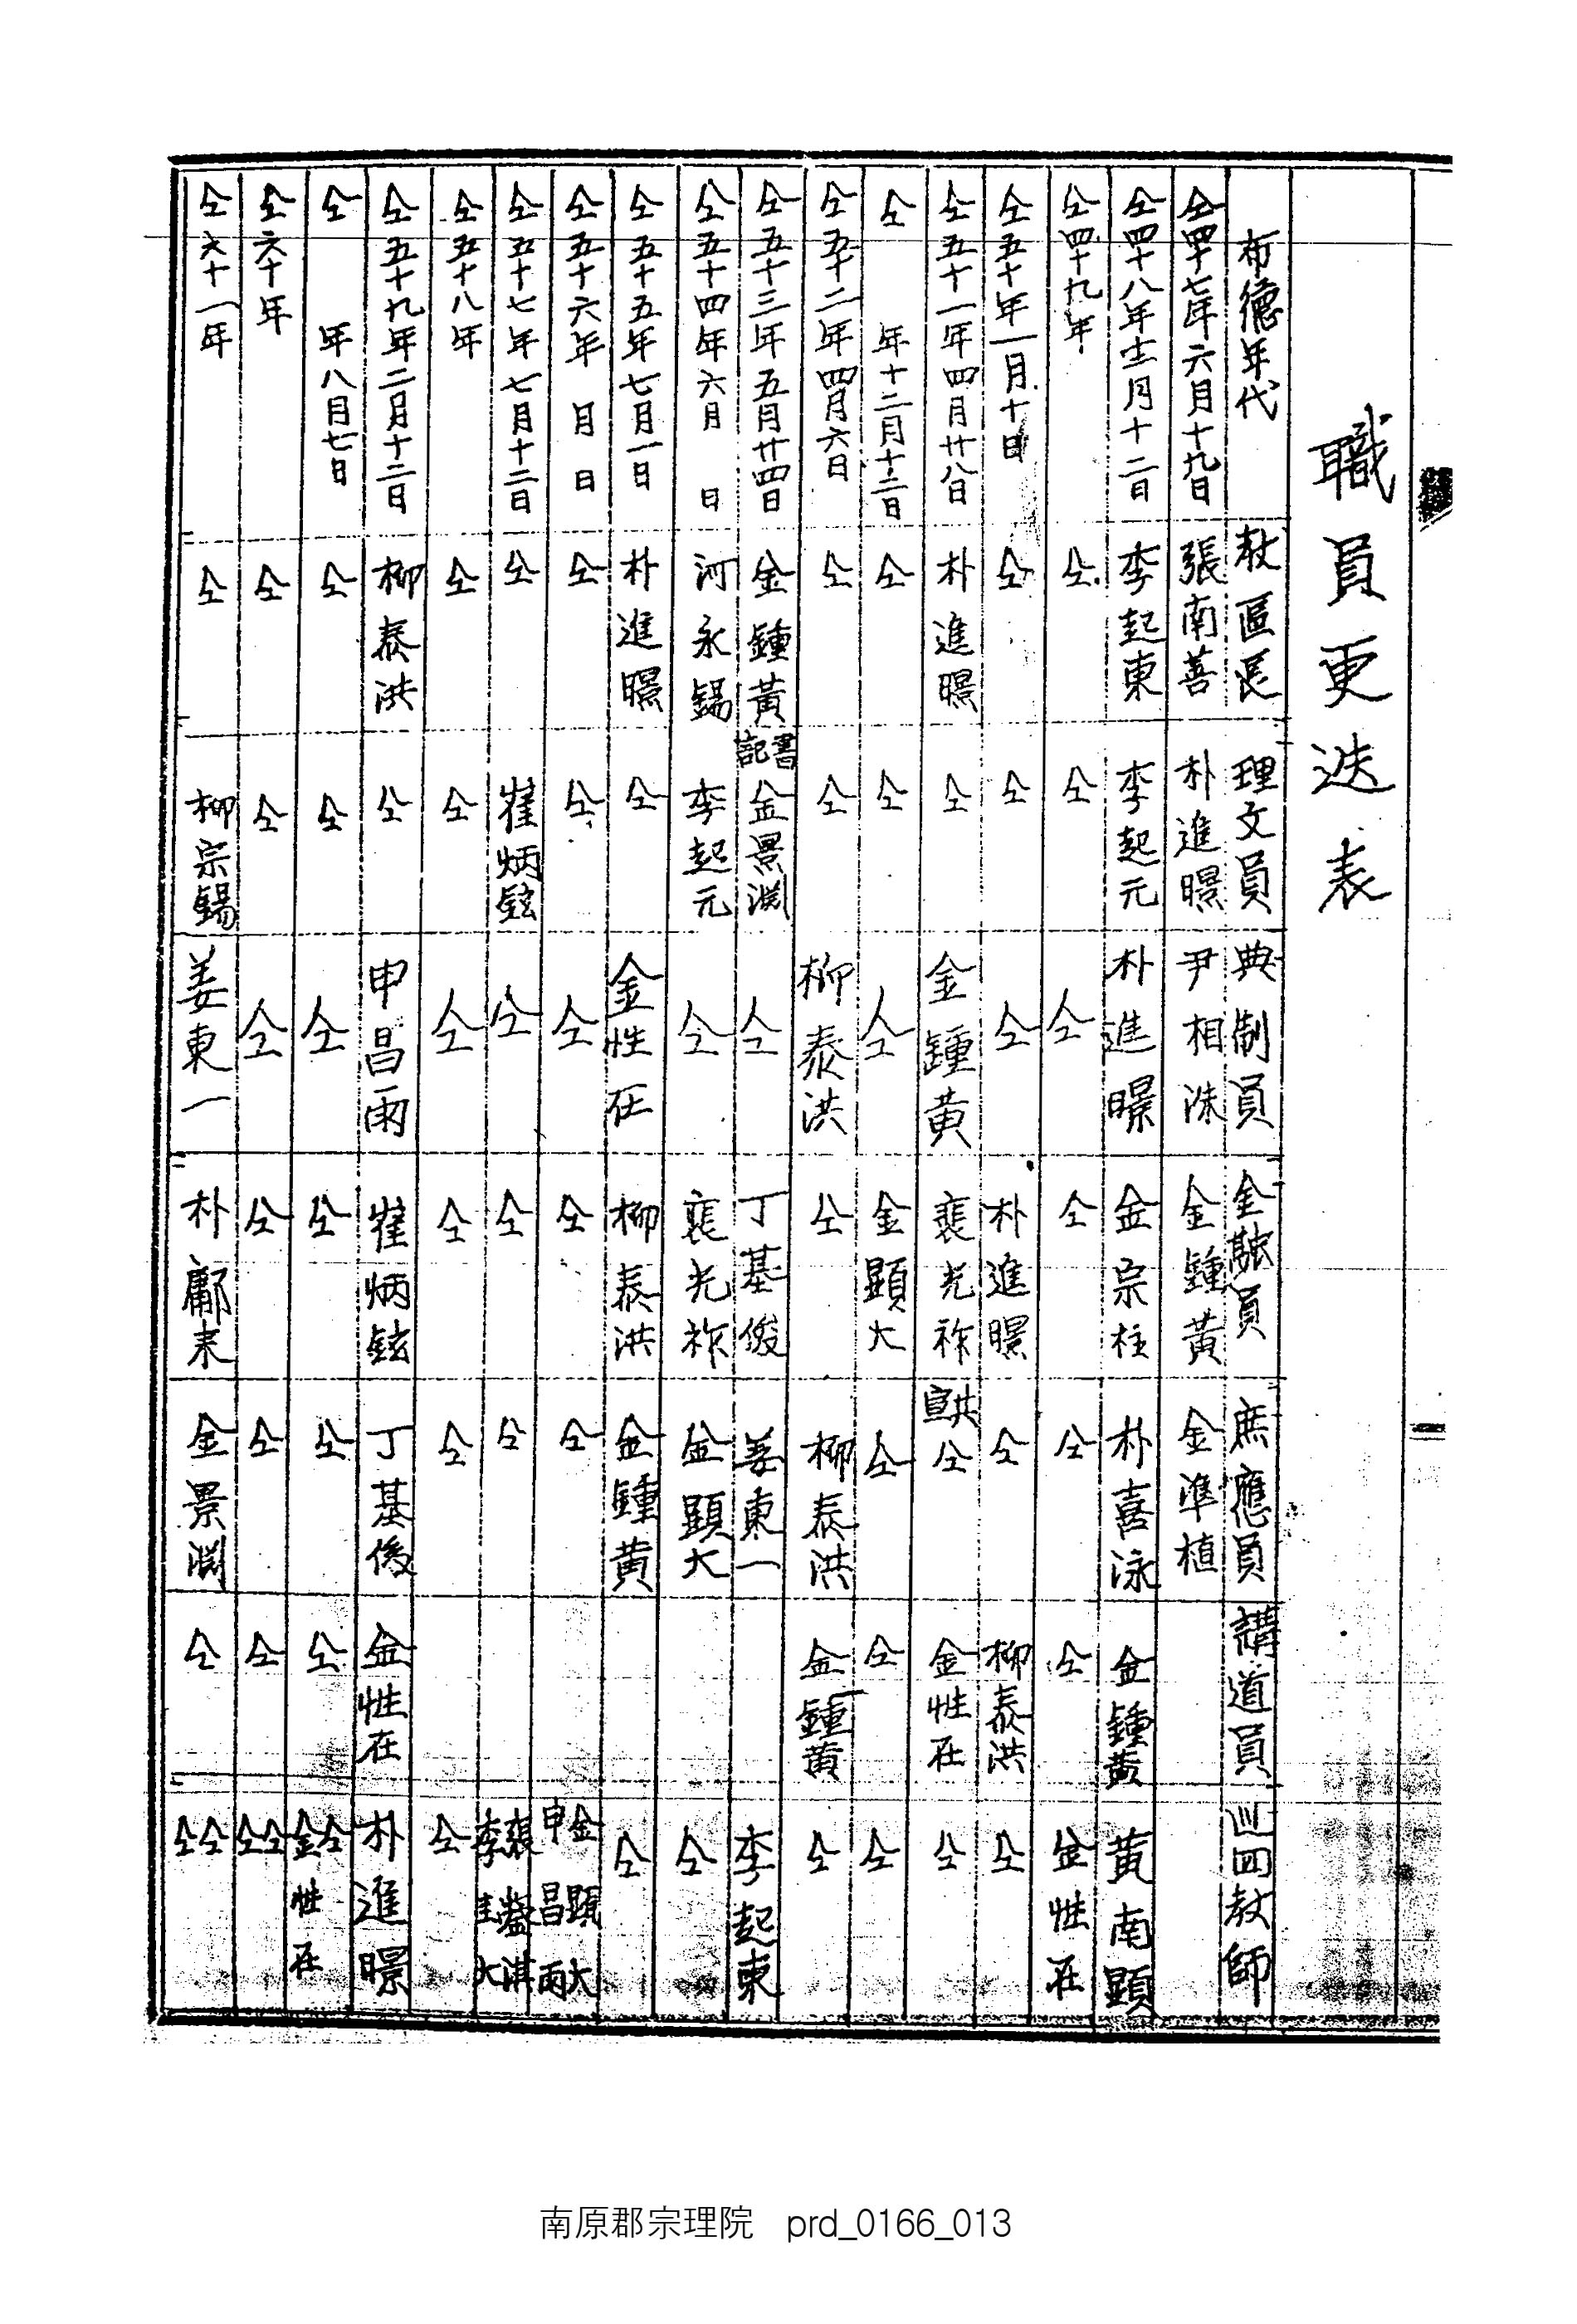 職員更迭表
布德年代 教區長 理文員 典制員 金融員 庶應員 講道員 巡回教師
仝四十七年六月十九日 張南善 朴進暻 尹相洙 金鍾黃 金準植
仝四十八年十二月十二日 李起東 李起元 朴進暻 金宗柱 朴喜泳 金鍾黃 黃南顯
仝四十九年 仝 仝 仝 仝 仝 仝 金性在
仝五十年一月十日 仝 仝 仝 朴進暻 仝 柳泰洪 仝
仝五十一年四月廿八日 朴進暻 仝 金鍾黃 裵光祚 共宣 仝 金性在 仝
仝 年十二月十二日 仝 仝 仝 金顯大 仝 仝 仝
仝五十二年四月六日 仝 仝 柳泰洪 仝 柳泰洪 金鍾黃 仝
仝五十三年五月廿四日 金鍾黃 書記 金景淵 仝 丁基俊 姜東一 李起東
仝五十四年六月 日 河永錫 李起元 仝 裵光祚 金顯大 仝
仝五十五年七月一日 朴進暻 仝 金性在 柳泰洪 金鍾黃 仝
仝五十六年 月 日 仝 仝 仝 仝 仝 金顯大 申昌雨
仝五十七年七月十二日 仝 崔炳鉉 仝 仝 仝 裵 淇 李圭大
仝五十八年 仝 仝 仝 仝 仝 仝
仝五十九年二月十二日 柳泰洪 仝 申昌雨 崔炳鉉 丁基俊 金性在 朴進暻
仝 年八月七日 仝 仝 仝 仝 仝 仝 仝 金性在
仝六十年 仝 仝 仝 仝 仝 仝 仝 仝
仝六十一年 仝 柳宗錫 姜東一 朴鄘來 金景淵 仝 仝 仝
南原郡宗理院 prd_0166_013